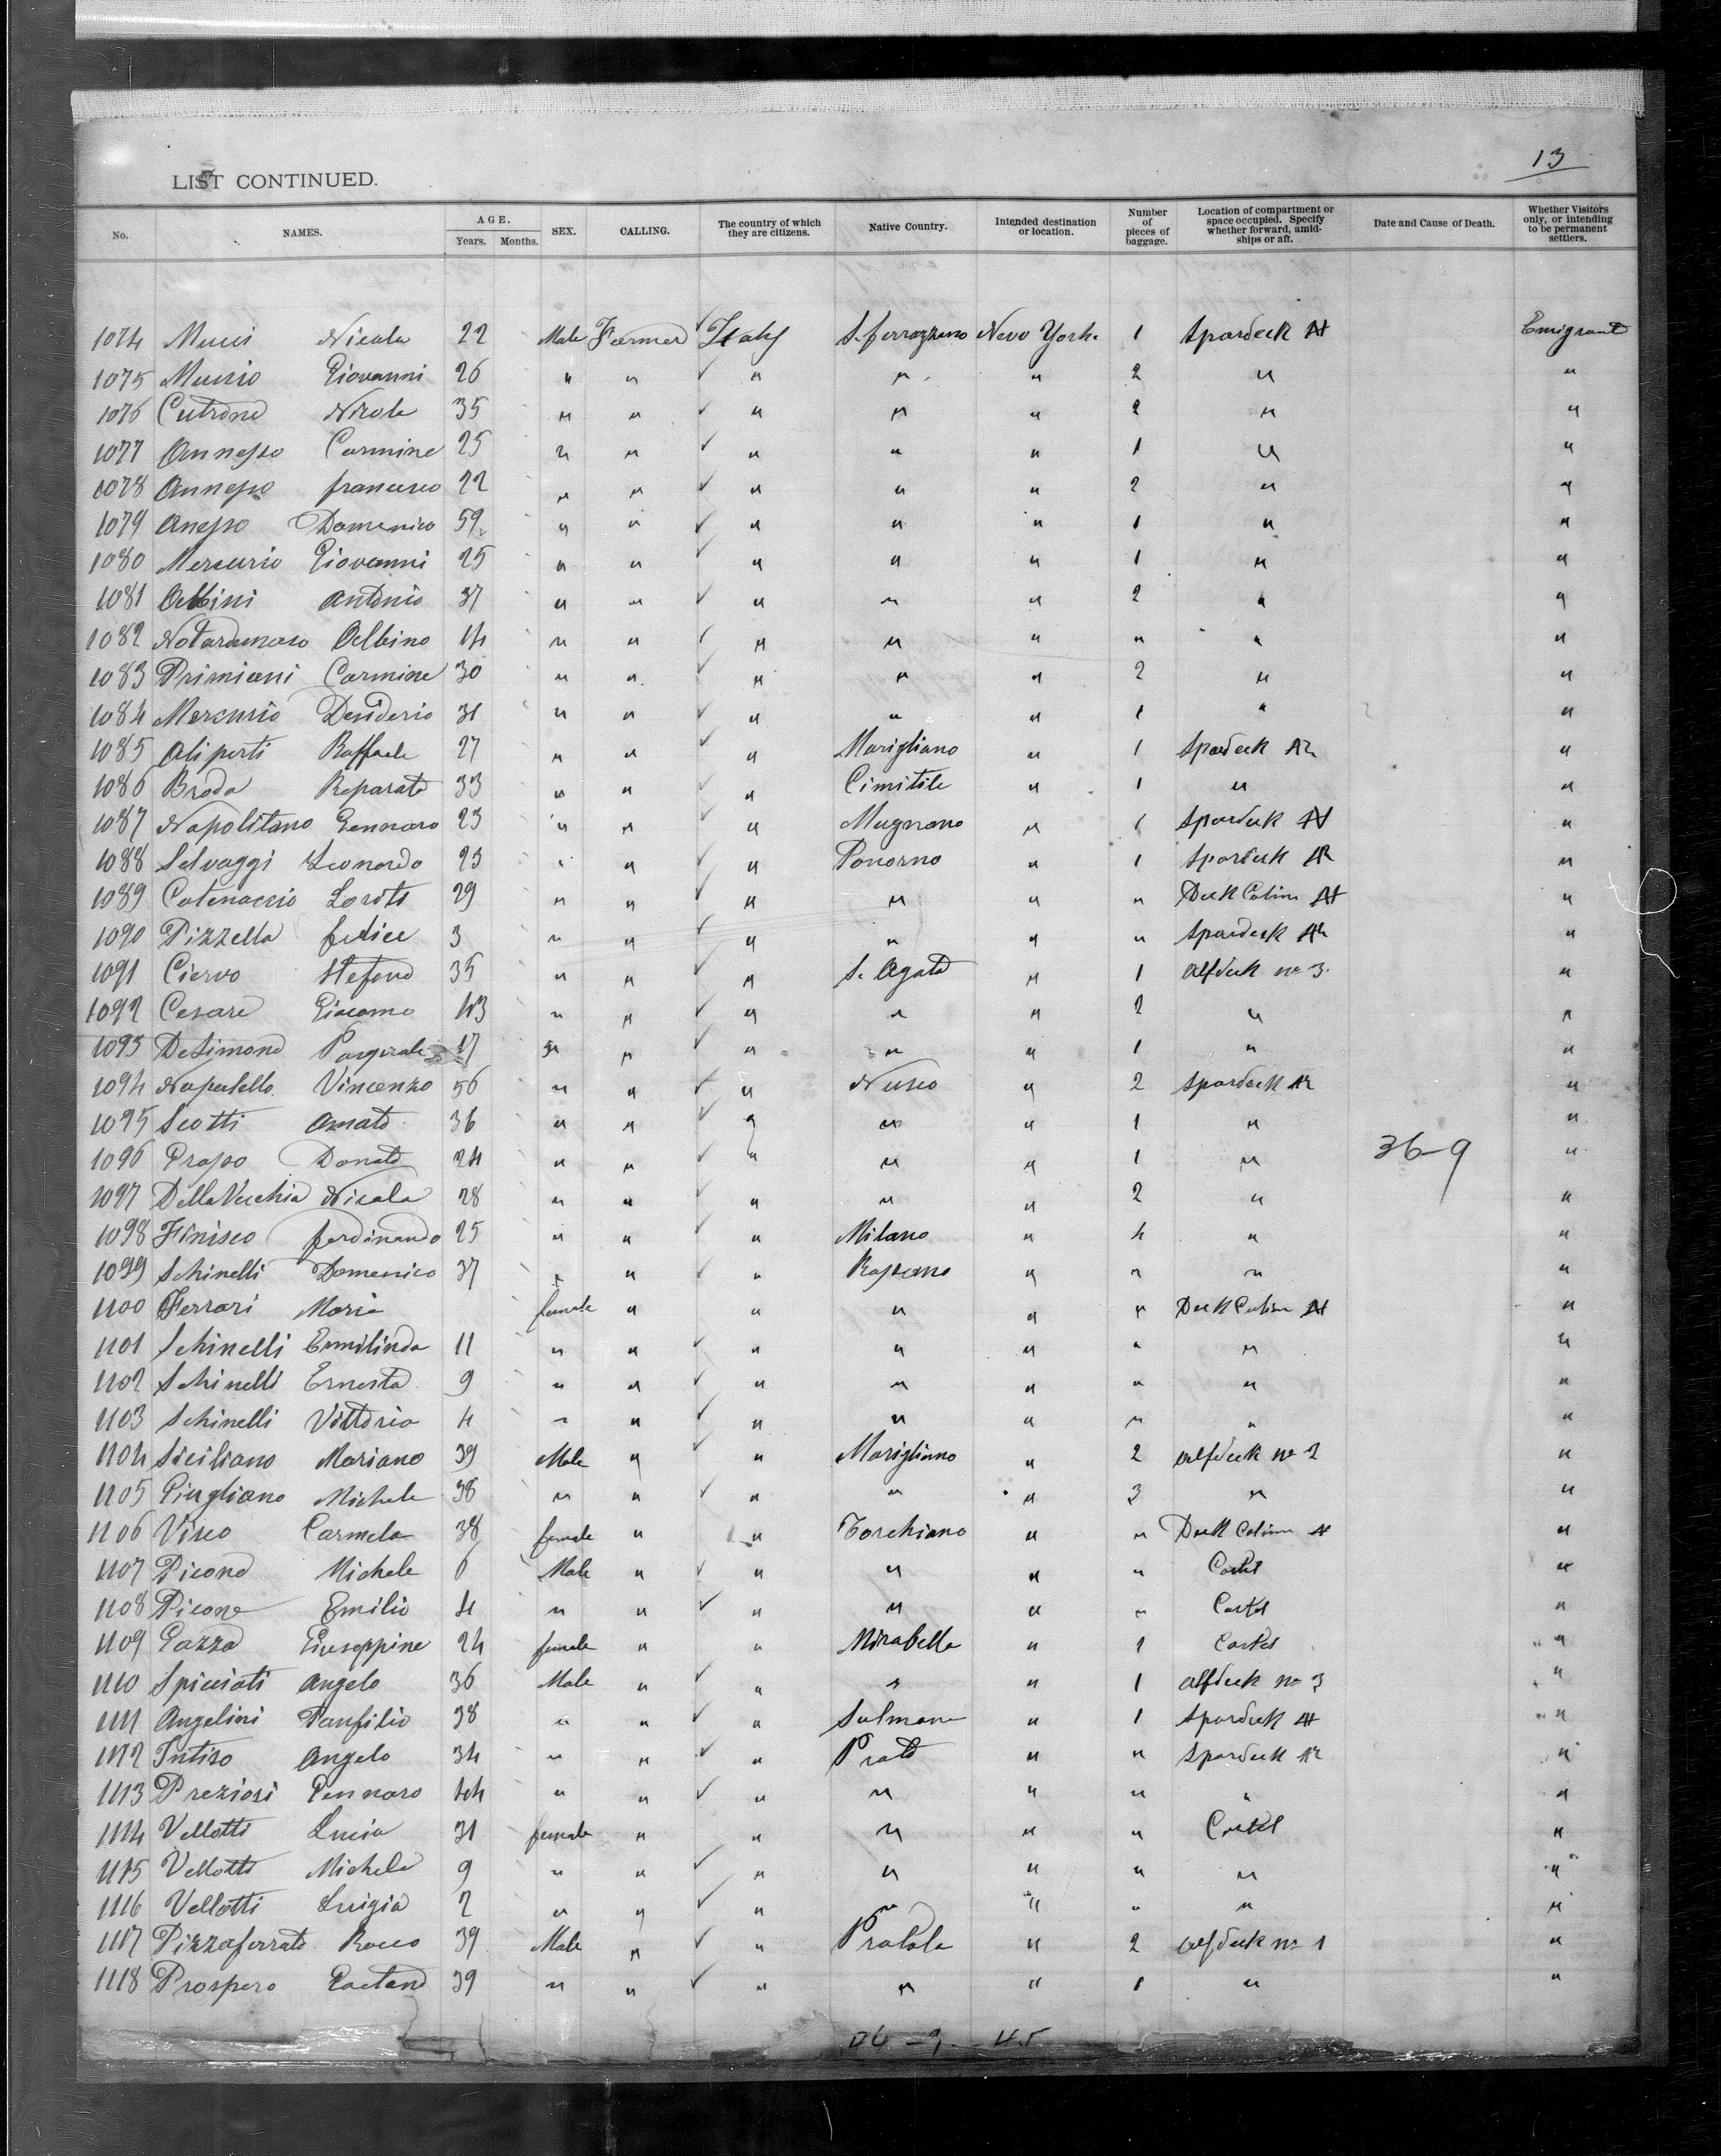 13
LIST CONTINUED.
No. NAMES. AGE. Years. Months. SEX. CALLING. The country of which they are citizens. Native Country. Intended destination or location. Number of pieces of baggage. Location of compartment or space occupied. Specify whether forward, amidships or aft. Date and Cause of Death. Whether Visitors only, or intending to be permanent settlers.
1074 Mucci Nicola 22 Male Farmer ✓ Italy S. ferrazzano New York 1 Spardeck Emigrant
1075 Muccio Giovanni 26 " " ✓ " " " 2 " "
1076 Cutrone Nicola 35 " " ✓ " " " 2 " "
1077 Annesso Carmine 25 " " ✓ " " " 1 " "
1078 Annesso francesco 22 " " ✓ " " " 2 " "
1079 Anesso Domenico 59 " " ✓ " " " 1 " "
1080 Mercurio Giovanni 25 " " ✓ " " " 1 " "
1081 Albini Antonio 37 " " ✓ " " " 2 " "
1082 Notardomaso Albino 14 " " ✓ " " " " " "
1083 Primiani Carmine 30 " " ✓ " " " 2 " "
1084 Mercurio Desiderio 31 " " ✓ " " " 1 " "
1085 Aliperti Raffaele 27 " " ✓ " Marigliano " 1 Spardeck "
1086 Broda Reparato 33 " " ✓ " Cimitile " 1 " "
1087 Napolitano Gennaro 23 " " ✓ " Mugnano " 1 Spardeck "
1088 Selvaggi Leonardo 23 " " ✓ " Ponorno " 1 Spardeck "
1089 Catenaccio Lorito 29 " " ✓ " " " " Deck Cabine "
1090 Pizzella felice 3 " " ✓ " " " " Spardeck "
1091 Ciervo Stefano 35 " " ✓ " S. Agata " 1 alfdeck no 3 "
1092 Cesare Giacomo 43 " " ✓ " " " 2 " "
1093 DeSimone Pasquale 17 " " ✓ " " " 1 " "
1094 Napolello Vincenzo 56 " " ✓ " Nusco " 2 Spardeck "
1095 Scotti Amato 36 " " ✓ " " " 1 " "
1096 Grasso Donato 24 " " ✓ " " " 1 " 36-9 "
1097 DellaVecchia Nicola 28 " " ✓ " " " 2 " "
1098 Finisco ferdinando 25 " " ✓ " Milano " 4 " "
1099 Schinelli Domenico 37 " " ✓ " Rossano " " " "
1100 Ferrari Maria female " " " " " Deck Cabine "
1101 Schinelli Ermilinda 11 " " ✓ " " " " " "
1102 Schinelli Ernesta 9 " " ✓ " " " " " "
1103 Schinelli Vittorio 4 " " ✓ " " " " " "
1104 Siciliano Mariano 39 Male " ✓ " Marigliano " 2 alfdeck no 2 "
1105 Giugliano Michele 38 " " ✓ " " " 3 " "
1106 Visco Carmela 38 female " " Torchiano " " Deck Cabine "
1107 Picone Michele 6 Male " ✓ " " " " Castel "
1108 Picone Emilio 4 " " ✓ " " " " Castel "
1109 Gazza Giuseppine 24 female " " Mirabella " 1 Castel "
1110 Spicciati Angelo 36 Male " ✓ " " " 1 alfdeck no 3 "
1111 Angelini Panfilio 38 " " ✓ " Sulmona " 1 Spardeck "
1112 Intiso Angelo 34 " " ✓ " Prato " " Spardeck "
1113 Preziosi Gennaro 44 " " ✓ " " " " " "
1114 Vellotti Lucia 31 female " " " " " Castel "
1115 Vellotti Michele 9 " " ✓ " " " " " "
1116 Vellotti Luigia 2 " " ✓ " " " " " "
1117 Pizzaferrato Rocco 39 Male " ✓ " Pratola " 2 alfdeck no 1 "
1118 Prospero Gaetano 39 " " ✓ " " " 1 " "
45